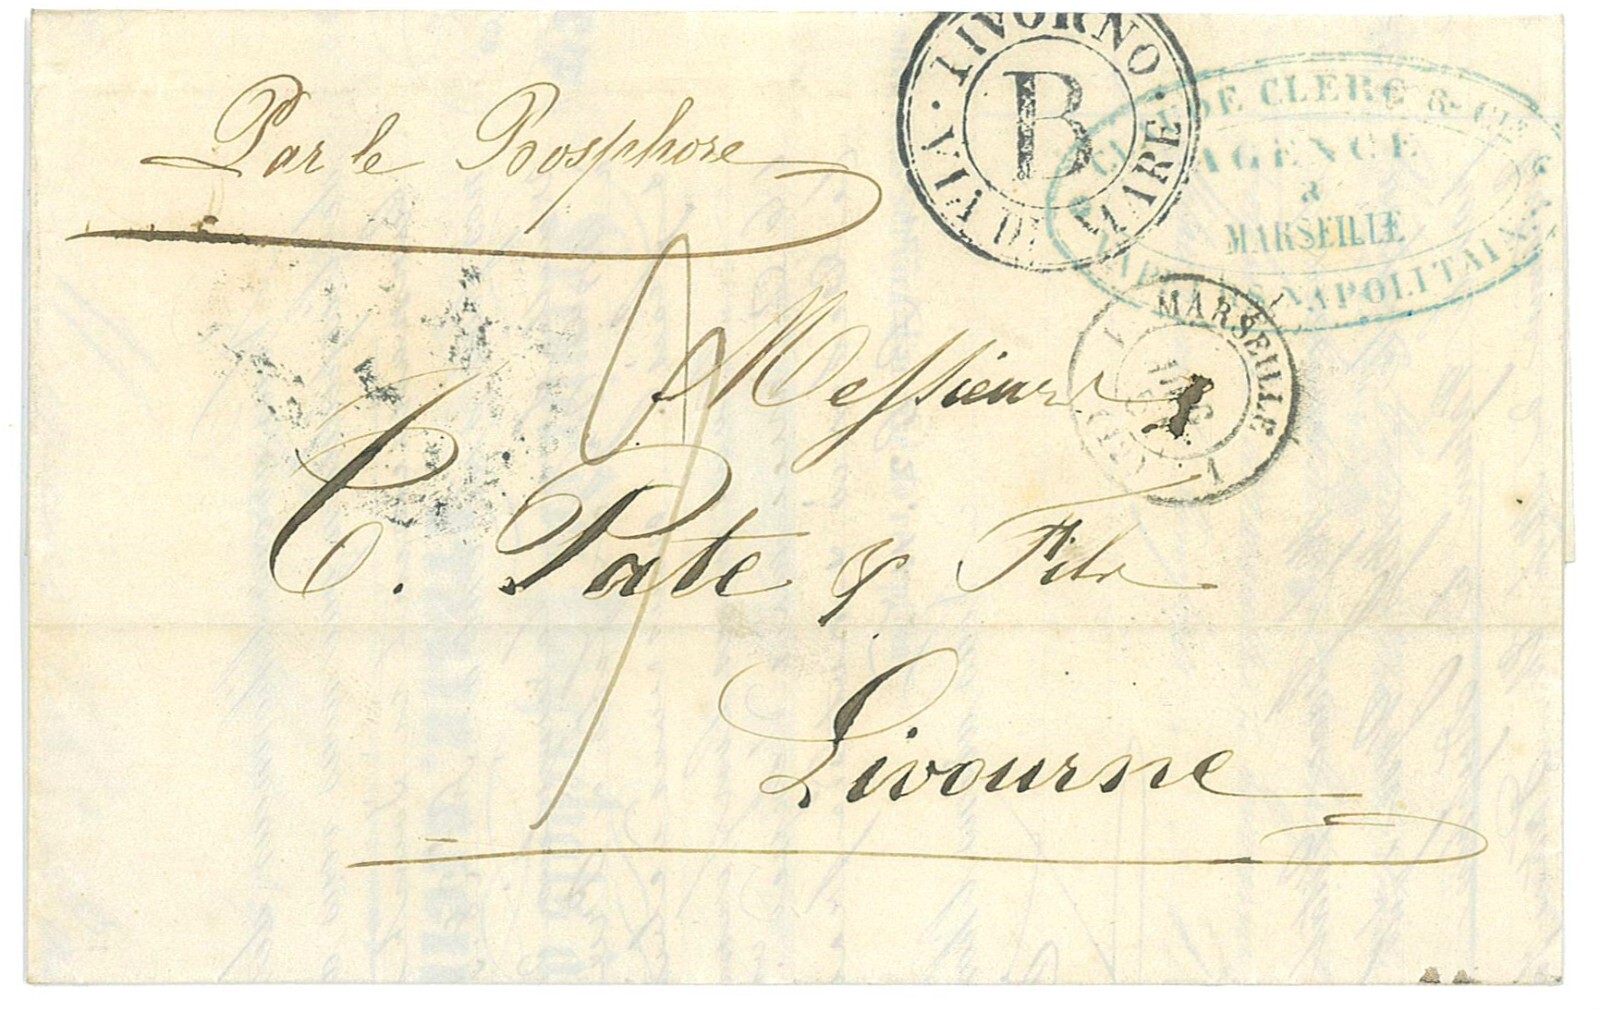 Par le Bosphore
LIVORNO
VIA DI MARE
B
DE CLERC & CIE
AGENCE
à
MARSEILLE
NAPOLITAINS
MARSEILLE
Messieurs
C. Pate & Fils
Livourne